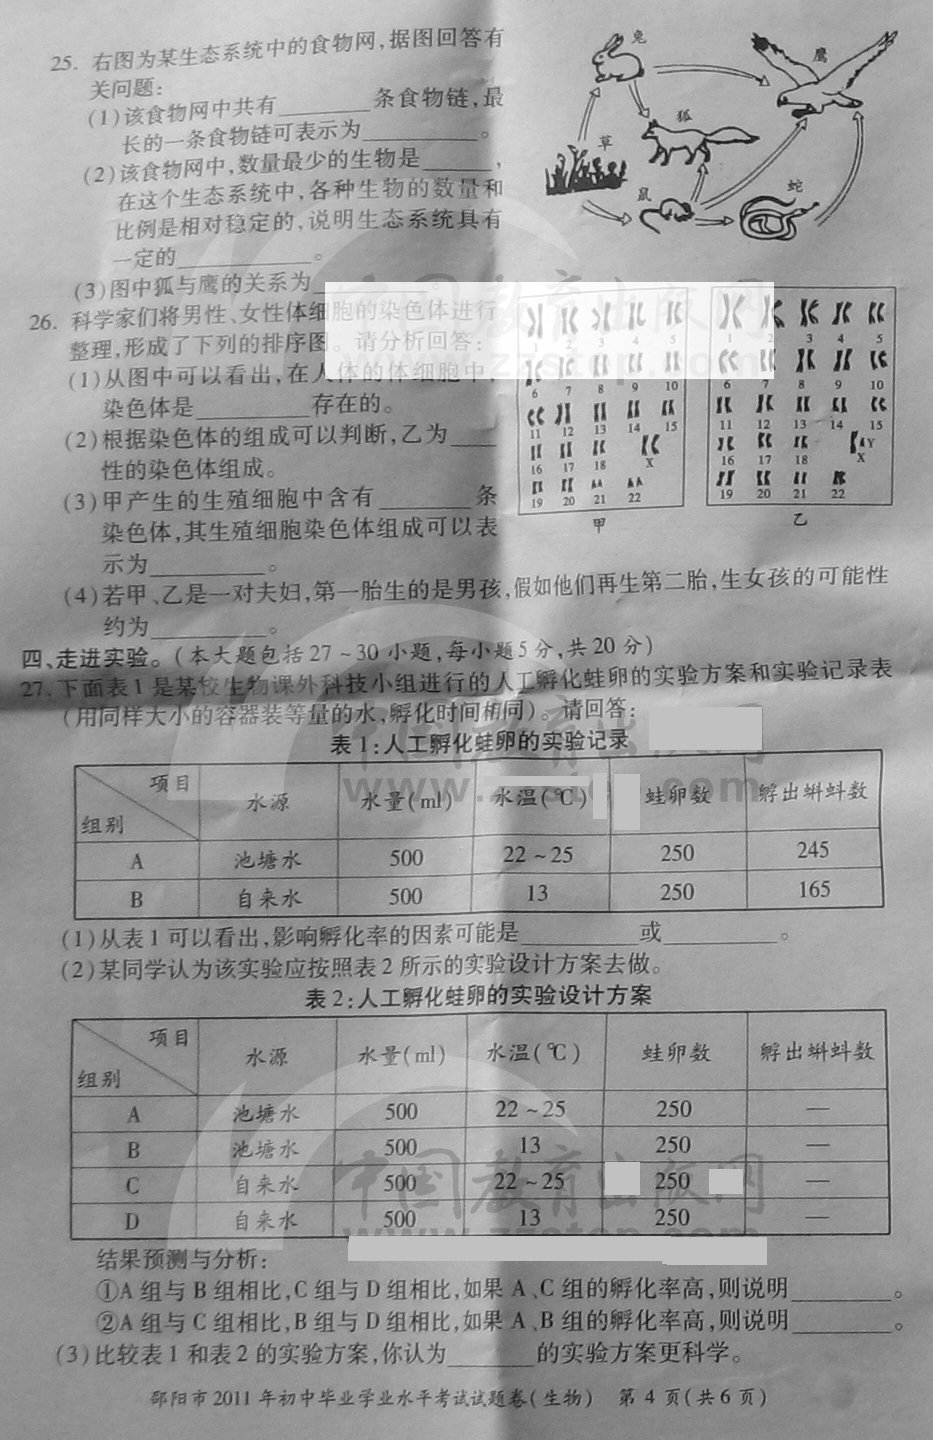 25. 右图为某生态系统中的食物网,据图回答有
关问题:
(1)该食物网中共有________条食物链,最
长的一条食物链可表示为__________。
(2)该食物网中,数量最少的生物是______,
在这个生态系统中,各种生物的数量和
比例是相对稳定的,说明生态系统具有
一定的____________。
(3)图中狐与鹰的关系为__________。
兔
鹰
狐
草
鼠
蛇
26. 科学家们将男性、女性体细胞的染色体进行
整理,形成了下列的排序图。请分析回答:
(1)从图中可以看出,在人体的体细胞中,
染色体是__________存在的。
(2)根据染色体的组成可以判断,乙为____
性的染色体组成。
(3)甲产生的生殖细胞中含有________条
染色体,其生殖细胞染色体组成可以表
示为__________。
(4)若甲、乙是一对夫妇,第一胎生的是男孩,假如他们再生第二胎,生女孩的可能性
约为__________。
1 2 3 4 5
6 7 8 9 10
11 12 13 14 15
16 17 18 X
19 20 21 22
甲
1 2 3 4 5
6 7 8 9 10
11 12 13 14 15
16 17 18 X Y
19 20 21 22
乙
四、走进实验。(本大题包括27~30小题,每小题5分,共20分)
27. 下面表1是某校生物课外科技小组进行的人工孵化蛙卵的实验方案和实验记录表
(用同样大小的容器装等量的水,孵化时间相同)。请回答:
表1:人工孵化蛙卵的实验记录
项目 组别 水源 水量(ml) 水温(℃) 蛙卵数 孵出蝌蚪数
A 池塘水 500 22~25 250 245
B 自来水 500 13 250 165
(1)从表1可以看出,影响孵化率的因素可能是__________或__________。
(2)某同学认为该实验应按照表2所示的实验设计方案去做。
表2:人工孵化蛙卵的实验设计方案
项目 组别 水源 水量(ml) 水温(℃) 蛙卵数 孵出蝌蚪数
A 池塘水 500 22~25 250 —
B 池塘水 500 13 250 —
C 自来水 500 22~25 250 —
D 自来水 500 13 250 —
结果预测与分析:
①A组与B组相比,C组与D组相比,如果A、C组的孵化率高,则说明________。
②A组与C组相比,B组与D组相比,如果A、B组的孵化率高,则说明________。
(3)比较表1和表2的实验方案,你认为________的实验方案更科学。
邵阳市2011年初中毕业学业水平考试试题卷(生物) 第4页(共6页)